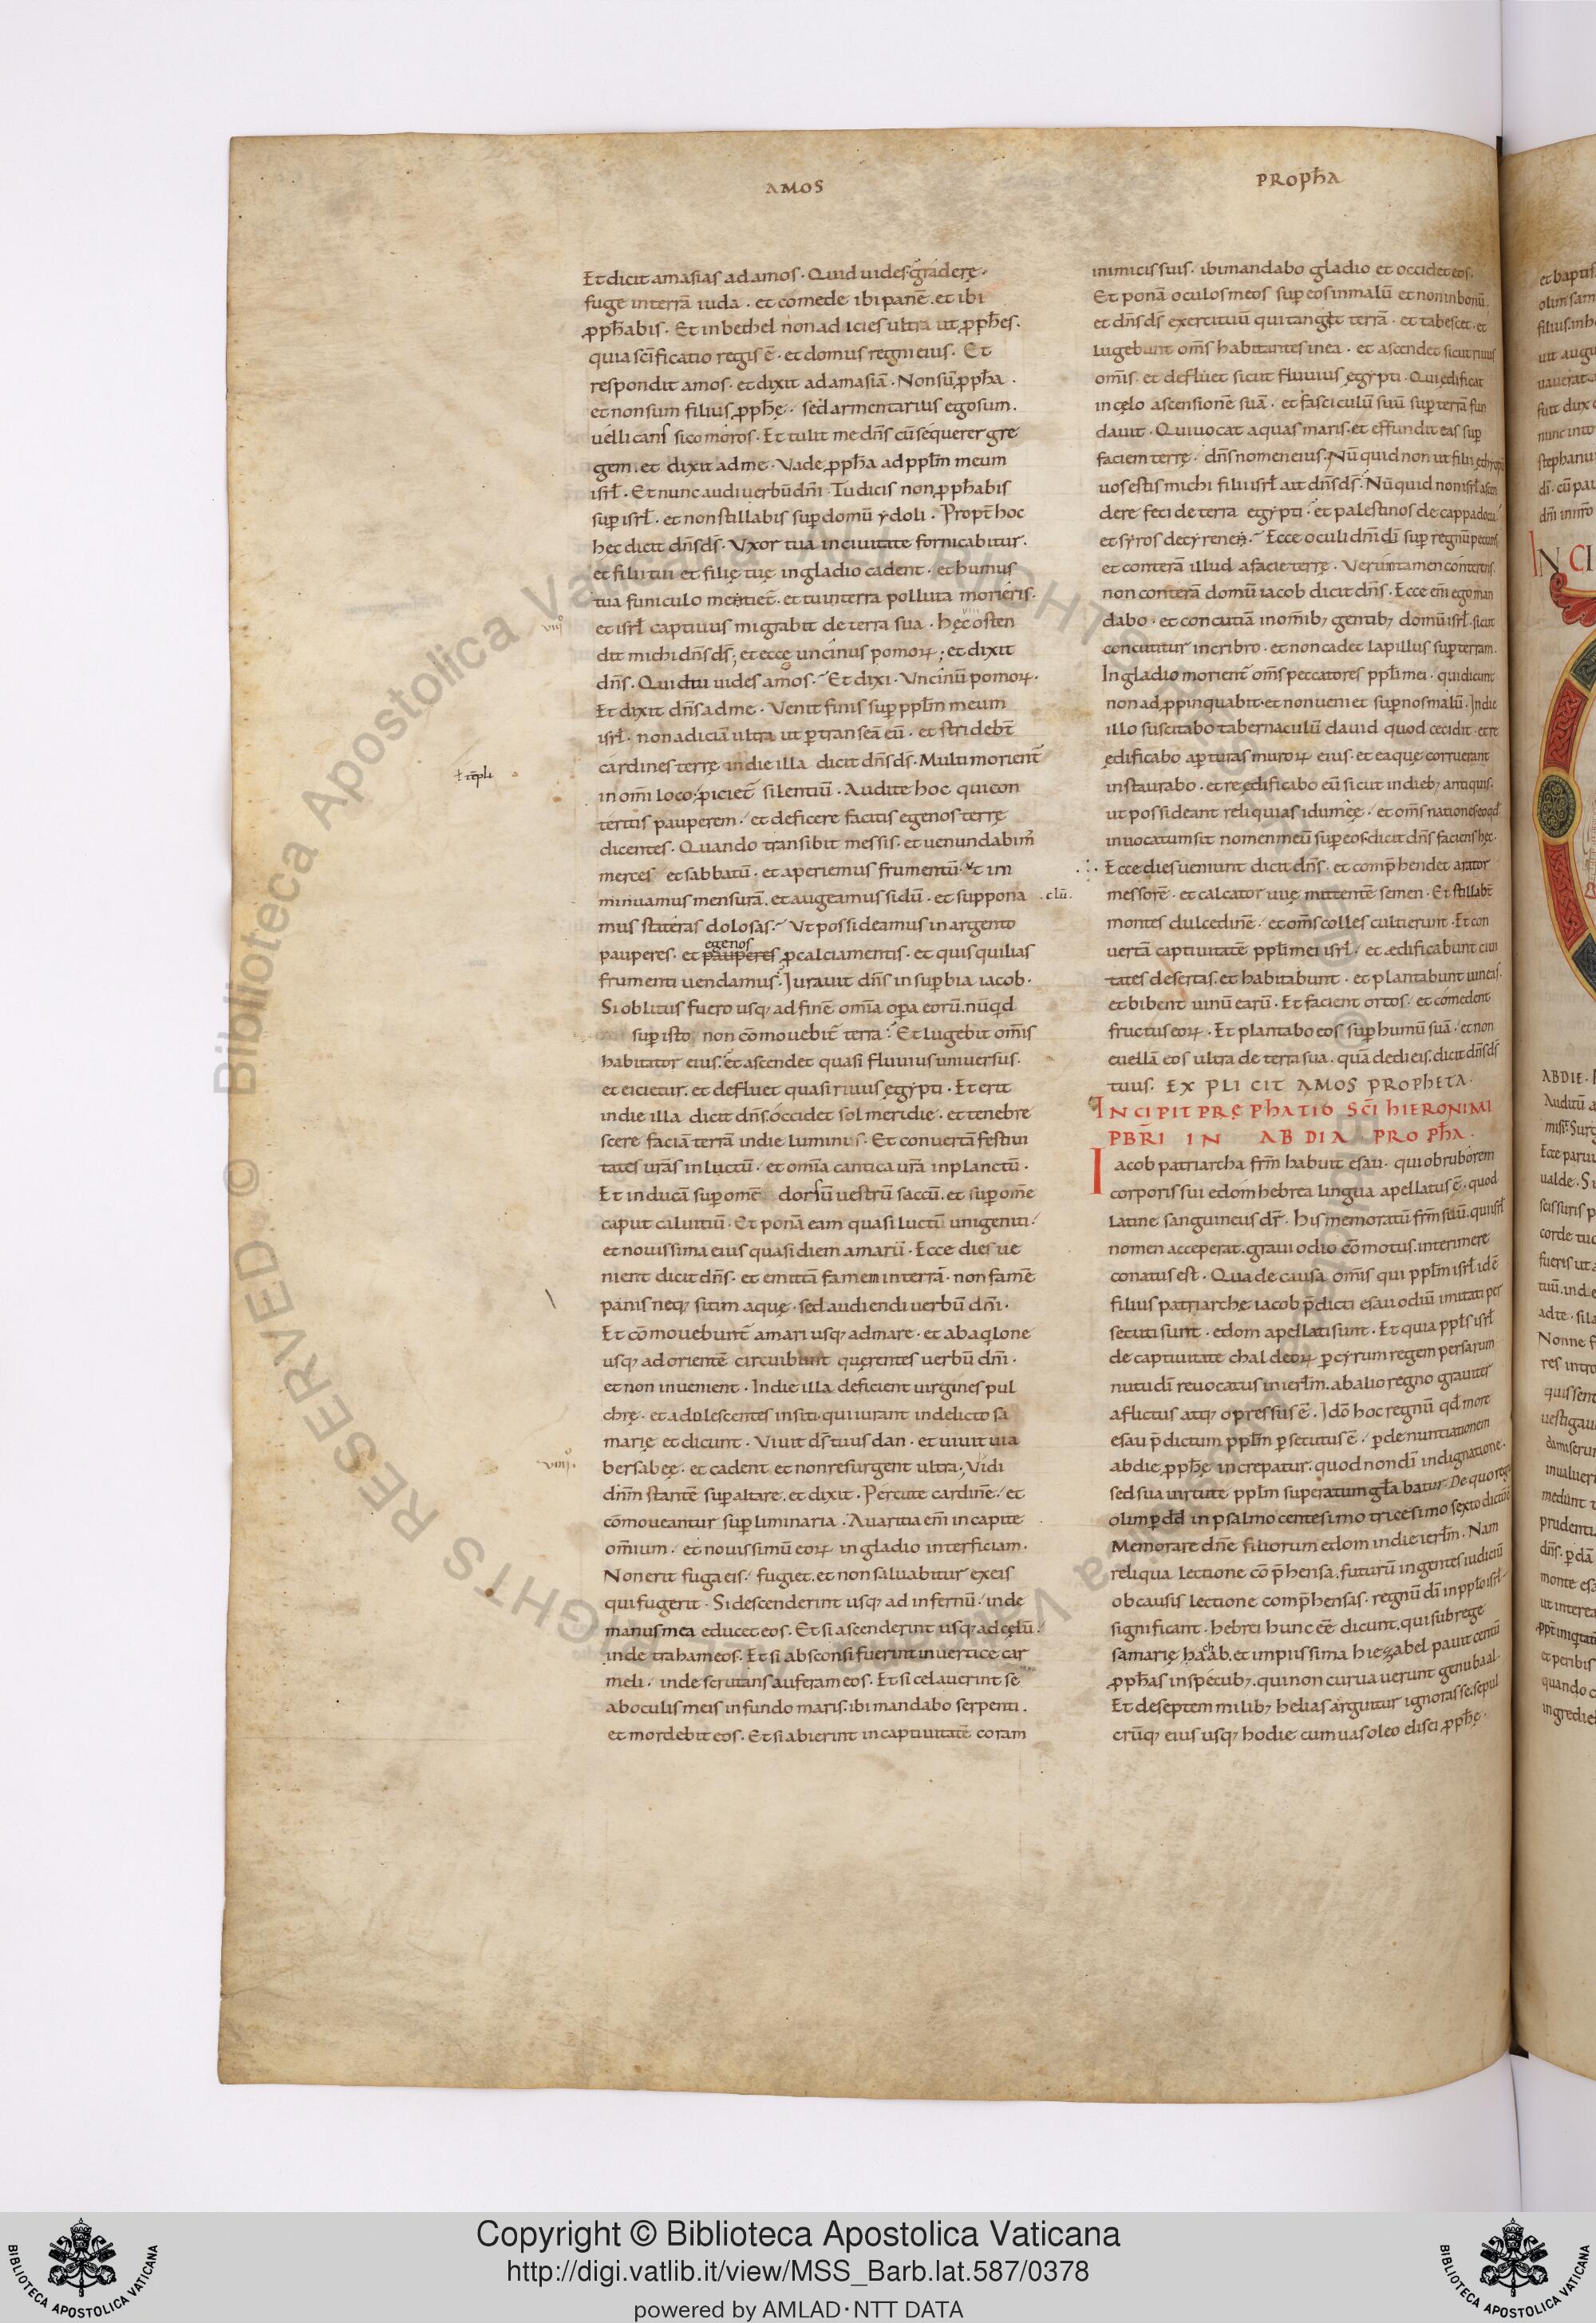 AMOS
PROPHA
Et dicit amasias ad amos. Qui uides gradere.
fuge in terrā iuda. et comede ibi panē. et ibi
ꝓph̄abis. Et in bethel non adicies ultra ut ꝓph̄es.
quia sc̄ificatio regis ē. et domus regni eius. Et
respondit amos. et dixit ad amasiā. Non sū ꝓph̄a.
et non sum filius ꝓph̄ę. sed armentarius ego sum.
uellicans sicomoros. Et tulit me dn̄s cū sequerer gre
gem. et dixit ad me. Vade ꝓph̄a ad ppl̄m meum
isrł. Et nunc audi uerbū dn̄i. Tu dicis non ꝓph̄abis
sup isrł. et non stillabis sup domū ydoli. Propt̄ hoc
hec dicit dn̄s ds̄. Vxor tua in ciuitate fornicabitur.
et filii tui et filię tuę in gladio cadent. et humus
tua funiculo metiet̄. et tu in terra polluta morieris.
et isrł captiuus migrabit de terra sua. hęc osten
dit michi dn̄s ds̄; et ecce uncinus pomoꝝ; et dixit
dn̄s. Quid tu uides amos. Et dixi. Vncinū pomoꝝ.
Et dixit dn̄s ad me. Venit finis sup ppl̄m meum
isrł. non adiciā ultra ut ptranseā eū. et stridebt̄
cardines terrę in die illa dicit dn̄s ds̄. Multi morient̄
in om̄i loco; piciet̄ silentiū. Audite hoc qui con
teritis pauperem. et deficere facitis egenos terrę
dicentes. Quando transibit messis. et uenundabim᷒
merces et sabbatū. et aperiemus frumentū. Vt im
minuamus mensurā. et augeamus siclū. et suppona
mus stateras dolosas. Vt possideamus in argento
egenos
pauperes. et pauperes ꝓ calciamentis. et quisquilias
frumenti uendamus. Iurauit dn̄s in supbia iacob.
Si oblitus fuero usq; ad finē om̄ia opa eorū. nūqd
sup isto non cōmouebit̄ terra. Et lugebit om̄is
habitator eius. et ascendet quasi fluuius uniuersus.
et eicietur. et defluet quasi riuus egypti. Et erit
in die illa dicit dn̄s. occidet sol meridie. et tenebre
scere faciā terrā in die luminis. Et conuertā festiui
tates urās in luctū. et om̄ia cantica urā in planctū.
Et inducā sup omē dorsū uestrū saccū. et sup om̄e
caput caluitiū. Et ponā eam quasi luctū unigeniti.
et nouissima eius quasi diem amarū. Ecce dies ue
nient dicit dn̄s. et emittā famem in terrā. non famē
panis neq; sitim aquę. sed audiendi uerbū dn̄i.
Et cōmouebunt̄ a mari usq; ad mare. et ab aqlone
usq; ad orientē circuibunt querentes uerbū dn̄i.
et non inuenient. In die illa deficient uirgines pul
chrę. et adolescentes in siti. qui iurant in delicto sa
marię et dicunt. Viuit ds̄ tuus dan. et uiuit uia
bersabeę. et cadent et non resurgent ultra. Vidi
dn̄m stantē sup altare. et dixit. Percute cardinē. et
cōmoueantur supliminaria. Auaritia em̄ in capite
om̄ium. et nouissimū eoꝝ in gladio interficiam.
Non erit fuga eis. fugiet. et non saluabitur ex eis
qui fugerit. Si descenderint usq; ad infernū. inde
manus mea educet eos. Et si ascenderint usq; ad cęlū.
inde traham eos. Et si absconsi fuerint in uertice car
meli. inde scrutans auferam eos. Et si celauerint se
ab oculis meis in fundo maris. ibi mandabo serpenti.
et mordebit eos. Et si abierint in captiuitatē coram
viiii
ł tēpli
.clū.
viiii.
inimicis suis. ibi mandabo gladio et occidet eos.
Et ponā oculos meos sup eos in malū et non in bonū.
et dn̄s ds̄ exercituū qui tangit terrā. et tabescet. et
lugebunt om̄s habitantes in ea. et ascendet sicut riuus
om̄is. et defluet sicut fluuius ęgypti. Qui ędificat
in cęlo ascensionē suā. et fasciculū suū sup terrā fun
dauit. Qui uocat aquas maris. et effundit eas sup
faciem terrę. dn̄s nomen eius. Nūquid non ut filii ęthiopū
uos estis michi filii isrł ait dn̄s ds̄. Nūquid non isrł ascen
dere feci de terra egypti. et palestinos de cappadocia
et syros de cyrene. Ecce oculi dn̄i dī sup regnū peccans
et conterā illud a facie terrę. Veruntamen conterens
non conterā domū iacob dicit dn̄s. Ecce em̄ ego man
dabo. et concutiā in om̄ib; gentib; domū isrł. sicut
concutitur in cribro. et non cadet lapillus sup terram.
In gladio morient̄ om̄s peccatores ppl̄i mei. qui dicunt
non adꝓpinquabit. et non ueniet sup nos malū. In die
illo suscitabo tabernaculū dauid quod cecidit. et re
ędificabo apturas muroꝝ eius. et ea quę corruerant
instaurabo. et reędificabo eū sicut in dieb; antiquis.
ut possideant reliquias idumęę. et om̄s nationes eo qd
inuocatum sit nomen meū sup eos. dicit dn̄s faciens hęc.
Ecce dies ueniunt dicit dn̄s. et comp̄hendet arator
messorē. et calcator uuę mittentē semen. Et stillabt̄
montes dulcedinē. et om̄s colles culti erunt. Et con
uertā captiuitatē ppl̄i mei isrł. et ędificabunt ciui
tates desertas. et habitabunt. et plantabunt uineas.
et bibent uinū earū. Et facient ortos. et comedent
fructus eoꝝ. Et plantabo eos sup humū suā. et non
euellā eos ultra de terra sua. quā dedi eis. dicit dn̄s ds̄
tuus. EXPLICIT AMOS PROPHETA.
INCIPIT PRĘPHATIO SC̄I HIERONIMI
PBR̄I IN ABDIA PROPH̄A.
Iacob patriarcha fr̄m habuit esau. qui ob ruborem
corporis sui edom hebrea lingua apellatus ē. quod
latine sanguineus dr̄. his memoratū fr̄m suū. qui isrł
nomen acceperat. graui odio cōmotus. interimere
conatus est. Qua de causa om̄is qui ppl̄m isrł idē
filius patriarchę iacob p̄dicti esau odiū imitati per
secuti sunt. edom apellati sunt. Et quia ppl̄s isrł
de captiuitate chaldeoꝝ p cyrum regem persarum
nutu dī reuocatus in ierl̄m. ab alio regno grauiter
aflictus atq; opressus ē. Idō hoc regnū qd more
esau p̄dictum ppl̄m psecutus ē. p denuntiationem
abdie ꝓph̄ę increpatur. quod non dī indignatione.
sed sua uirtute ppl̄m superatum gl̄abatur. De quo regno
olim p dd̄ in psalmo centesimo tricesimo sexto dictū ē
Memorare dn̄e filiorum edom in die ierl̄m. Nam
reliqua lectione cōp̄hensa. futurū in gentes iudiciū
ob causis lectione comp̄hensas. regnū dī in ppl̄o isrł
significant. hebrei hunc eē̄ dicunt. qui sub rege
samarię haab. et impiissima hiezabel pauit centū
ꝓph̄as in specub;. qui non curuauerunt genu baal.
Et de septem milib; helias arguitur ignorasse. sepul
crūq; eius usq; hodie cum uasoleo elisei ꝓph̄ę.
INCI
ABDIE.
Copyright © Biblioteca Apostolica Vaticana
http://digi.vatlib.it/view/MSS_Barb.lat.587/0378
powered by AMLAD·NTT DATA
BIBLIOTECA APOSTOLICA VATICANA
BIBLIOTECA APOSTOLICA VATICANA